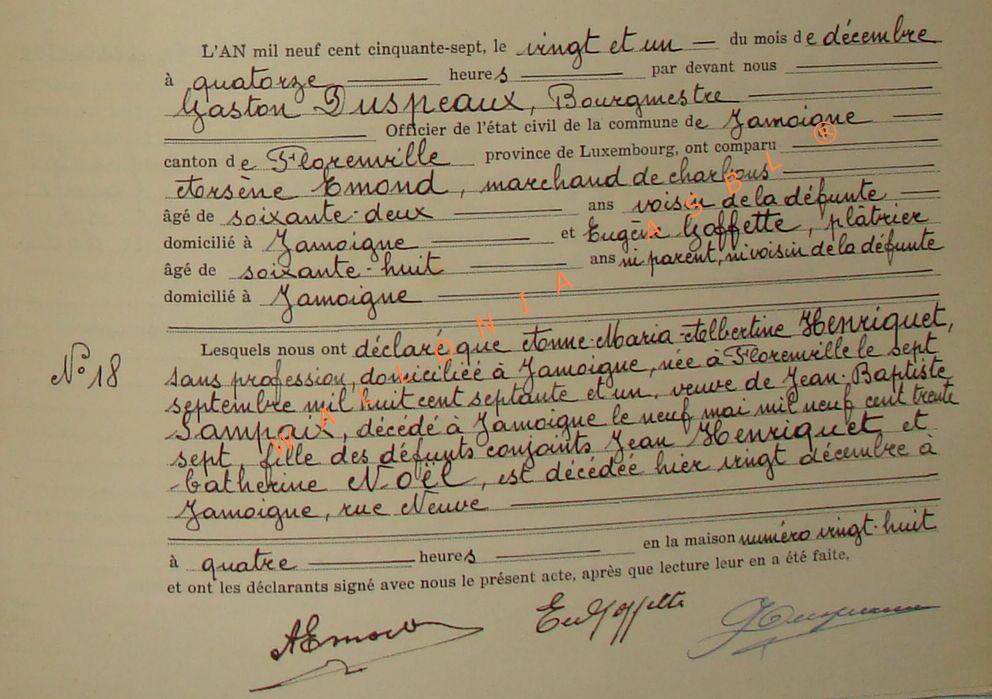 L'AN mil neuf cent cinquante-sept, le vingt et un — du mois de décembre
à quatorze heures par devant nous
Gaston Duspeaux, Bourgmestre
Officier de l'état civil de la commune de Jamoigne
canton de Florenville province de Luxembourg, ont comparu
Arsène Emond, marchand de charbons
âgé de soixante-deux ans voisin de la défunte
domicilié à Jamoigne et Eugène Goffette, plâtrier
âgé de soixante-huit ans ni parent, ni voisin de la défunte
domicilié à Jamoigne
Lesquels nous ont déclaré que Anne-Maria-Albertine Henriquet,
N° 18 sans profession, domiciliée à Jamoigne, née à Florenville le sept
septembre mil huit cent septante et un, veuve de Jean-Baptiste
Sampaix, décédé à Jamoigne le neuf mai mil neuf cent trente
sept, fille des défunts conjoints Jean Henriquet et
Catherine Noël, est décédée hier vingt décembre à
Jamoigne, rue Neuve
à quatre heures en la maison numéro vingt-huit
et ont les déclarants signé avec nous le présent acte, après que lecture leur en a été faite.
AEmond EugGoffette
WALLONIA ASBL ®